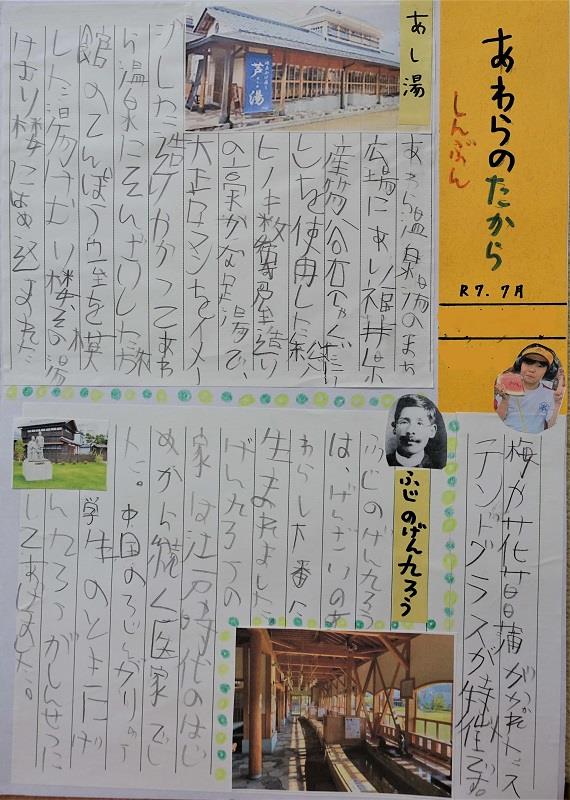 あわらのたから
しんぶん
R7.7月
あし湯
芦湯
あわら温泉場のまち
広場にあり福井県
産笏谷石やぐ
しを使用した総
ヒノキ数寄屋造り
の言
かな足湯で、
大正ロマンをイメー
ジした造り
かつてあわ
ら温泉にそんざいした旅
館のてんぼう室を模
した湯けむり楼
その湯
けむり楼にはめ込まれた
梅や花菖蒲がかかれたス
テンドグラスが特徴です。
ふじのげん九ろう
ふじのげん九ろう
は、げんざいのあ
わらし下番に
生まれました
げん九ろうの
家は江戸時代のはじ
めから続く医家でし
た。中国のろじんが
学生のときにげ
ん九ろうがしんせつに
してあげました。